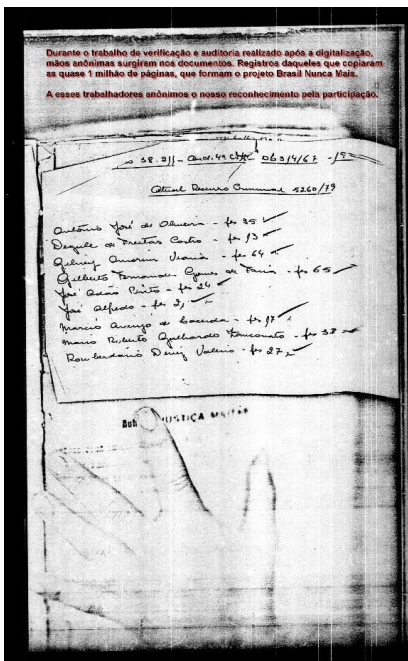 Durante o trabalho de verificação e auditoria realizado após a digitalização,
mãos anônimas surgiram nos documentos. Registros daqueles que copiaram
as quase 1 milhão de páginas, que formam o projeto Brasil Nunca Mais.
A esses trabalhadores anônimos o nosso reconhecimento pela participação.
38.911 - 063/4/67 - 
Atual Recurso Criminal 5260/79
Antônio José de Oliveira - fls 35
de Freitas Castro - fls 13
Gilney Amorim Viana - fls 64
Gilberto Fernandes Gomes de Faria - fls 65
José Adão Pinto - fls 24
José Alfredo - fls 2,
Marcio Araujo de Lacerda - fls 17
Mario Roberto Galhardo - fls 38
Valerio - fls 27,
JUSTIÇA MILITAR